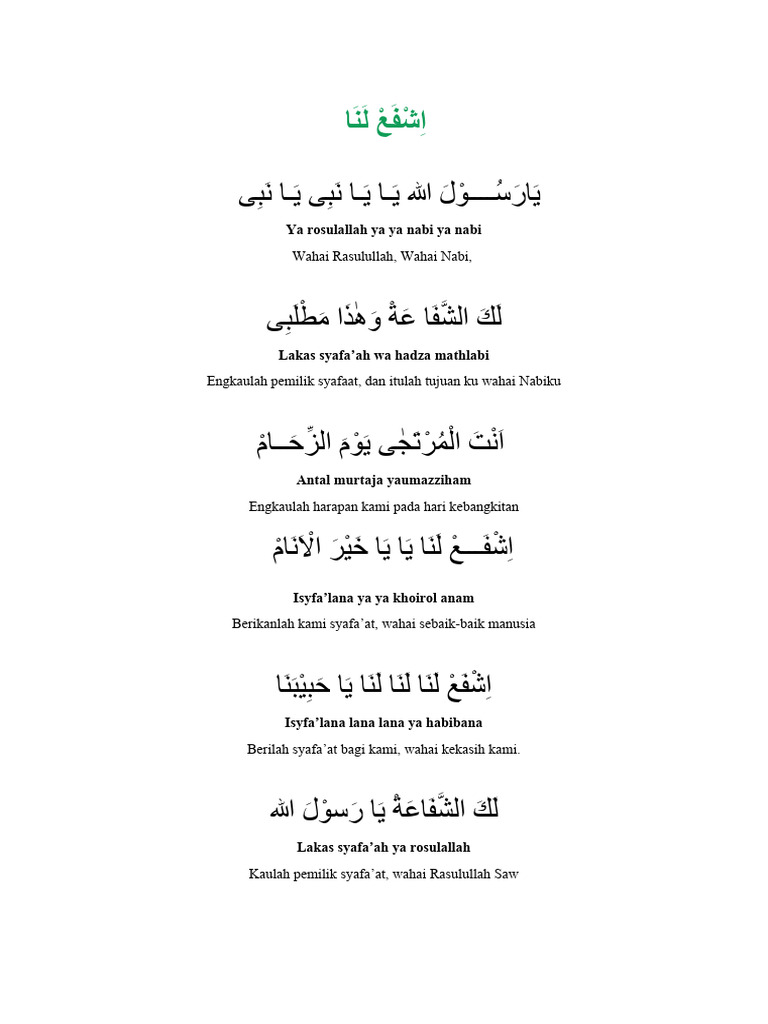 اِشْفَعْ لَنَا
يَارَسُـــــوْلَ الله يَـا يَا نَبِى يَـا نَبِى
Ya rosulallah ya ya nabi ya nabi
Wahai Rasulullah, Wahai Nabi,
لَكَ الشَّفَا عَةْ وَهٰذَا مَطْلَبِى
Lakas syafa’ah wa hadza mathlabi
Engkaulah pemilik syafaat, dan itulah tujuan ku wahai Nabiku
اَنْتَ الْمُرْتَجٰى يَوْمَ الزِّحَـــامْ
Antal murtaja yaumazziham
Engkaulah harapan kami pada hari kebangkitan
اِشْفَـــعْ لَنَا يَا يَا خَيْرَ الْاَنَامْ
Isyfa’lana ya ya khoirol anam
Berikanlah kami syafa’at, wahai sebaik-baik manusia
اِشْفَعْ لَنَا لَنَا لَنَا يَا حَبِيْبَنَا
Isyfa’lana lana lana ya habibana
Berilah syafa’at bagi kami, wahai kekasih kami.
لَكَ الشَّفَاعَةْ يَا رَسوْلَ الله
Lakas syafa’ah ya rosulallah
Kaulah pemilik syafa’at, wahai Rasulullah Saw